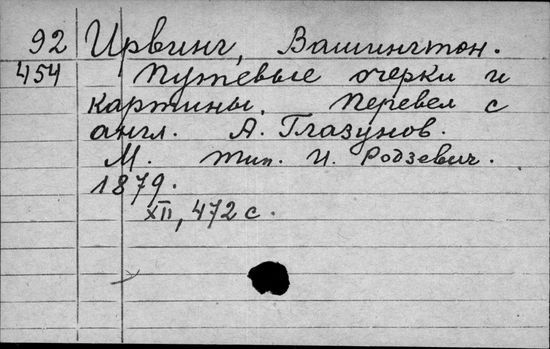 92 Ирвинг, Вашингтон.
454 Путевые очерки и
картины. Перевел с
англ. А. Глазунов.
М. тип. И. Родзевич.
1879.
XII, 472 с.